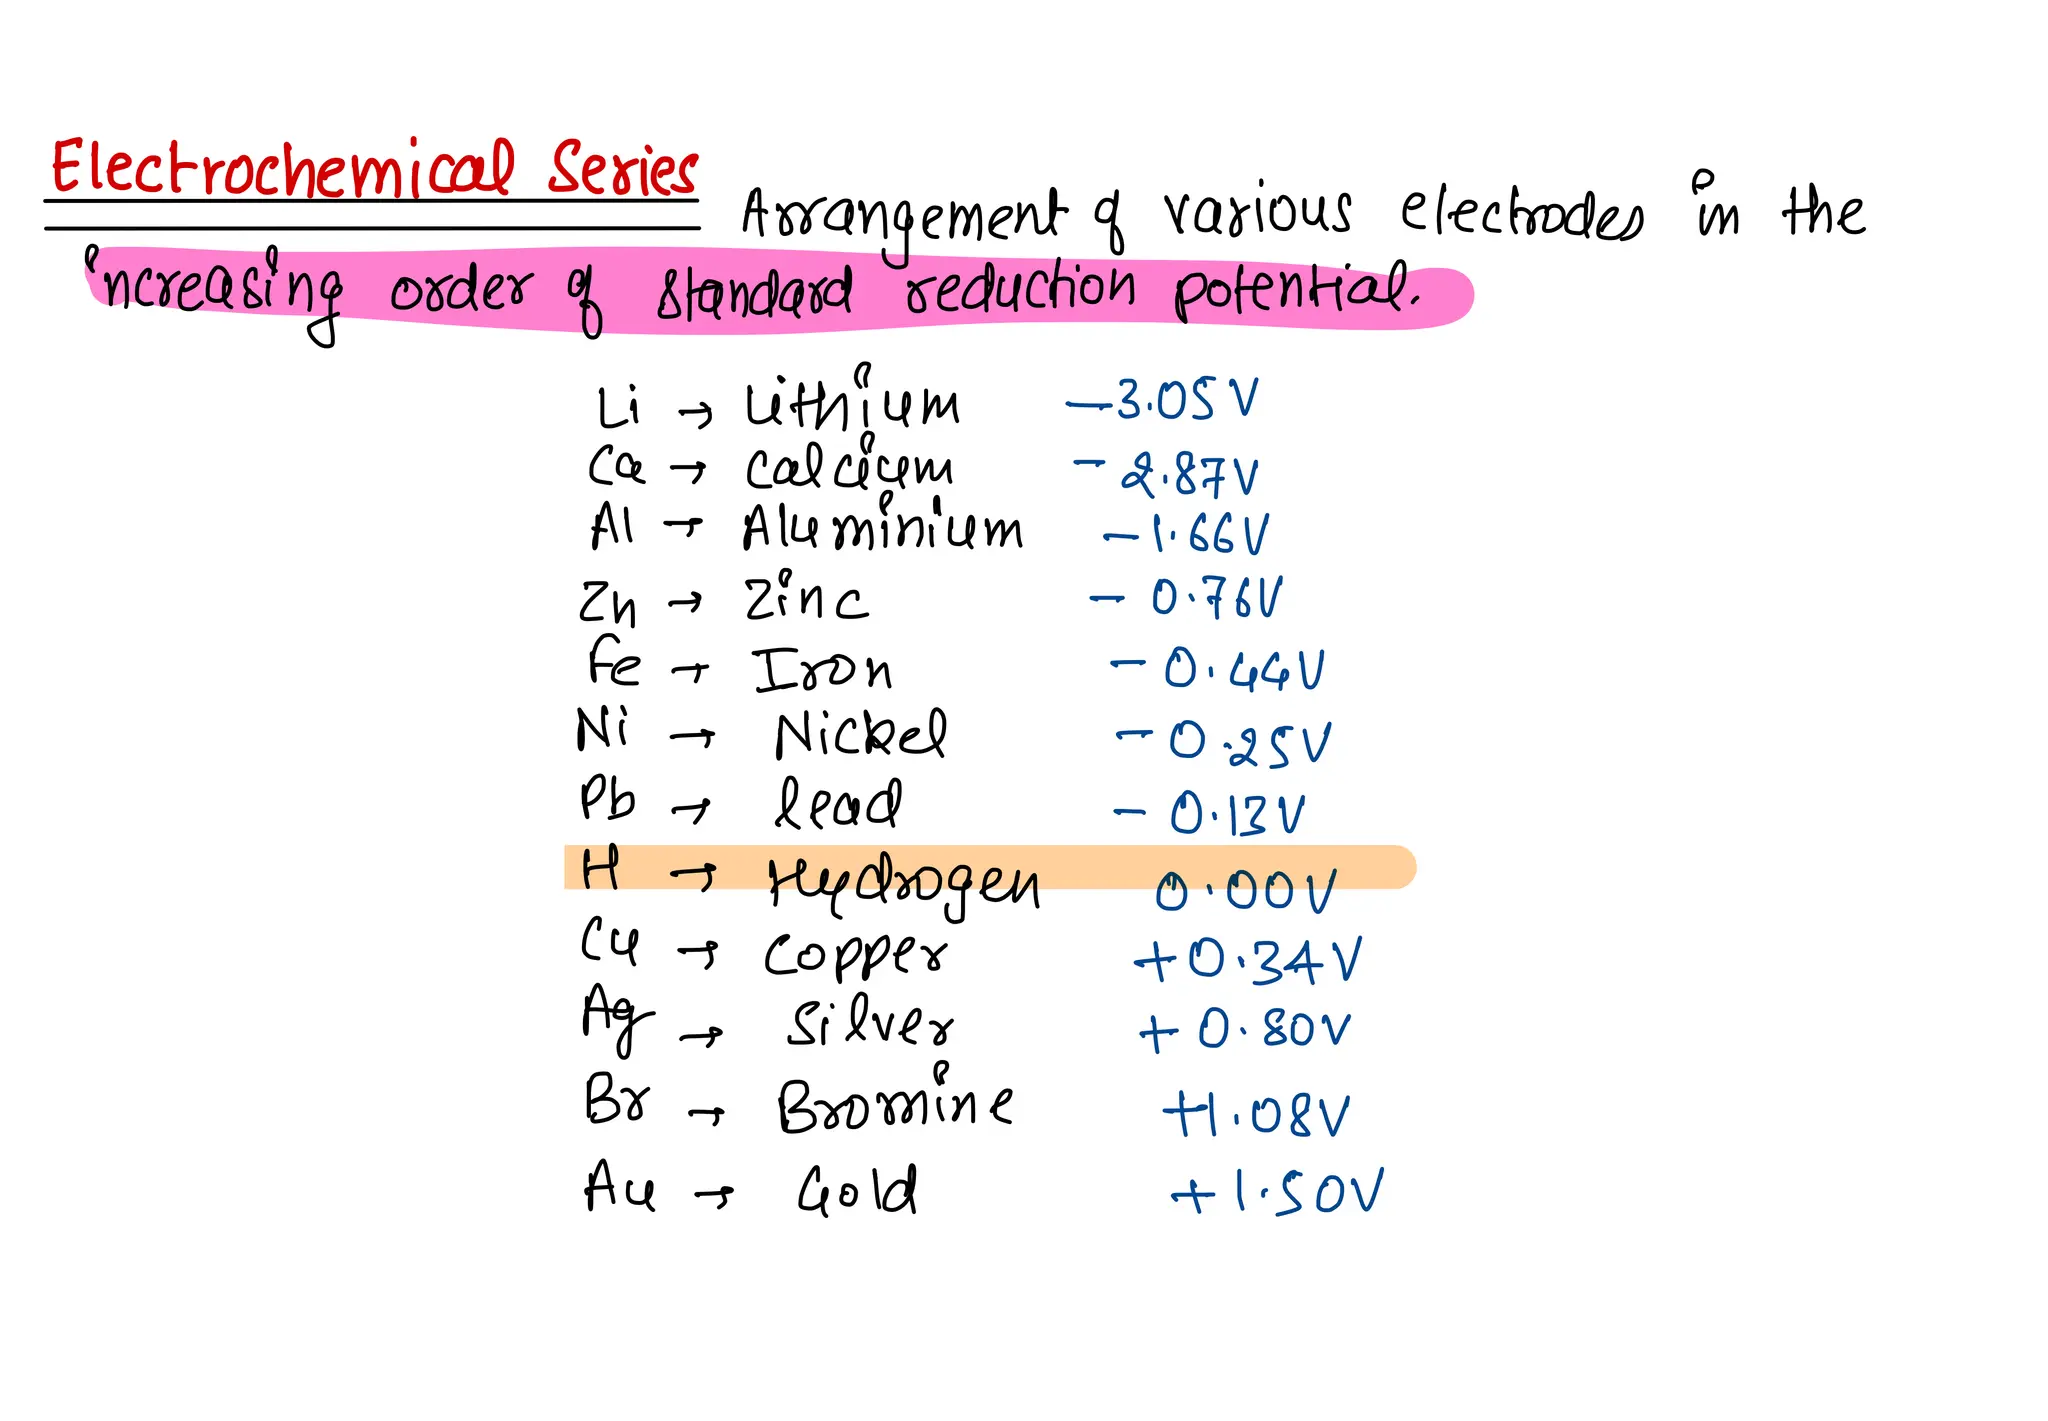 Electrochemical Series Arrangement of various electrodes in the
increasing order of standard reduction potential.
Li → Lithium −3.05 V
Ca → Calcium − 2.87V
Al → Aluminium −1.66V
Zn → Zinc − 0.76V
Fe → Iron − 0.44V
Ni → Nickel − 0.25V
Pb → lead − 0.13V
H → Hydrogen 0.00V
Cu → Copper +0.34V
Ag → Silver + 0.80V
Br → Bromine +1.08V
Au → Gold +1.50V